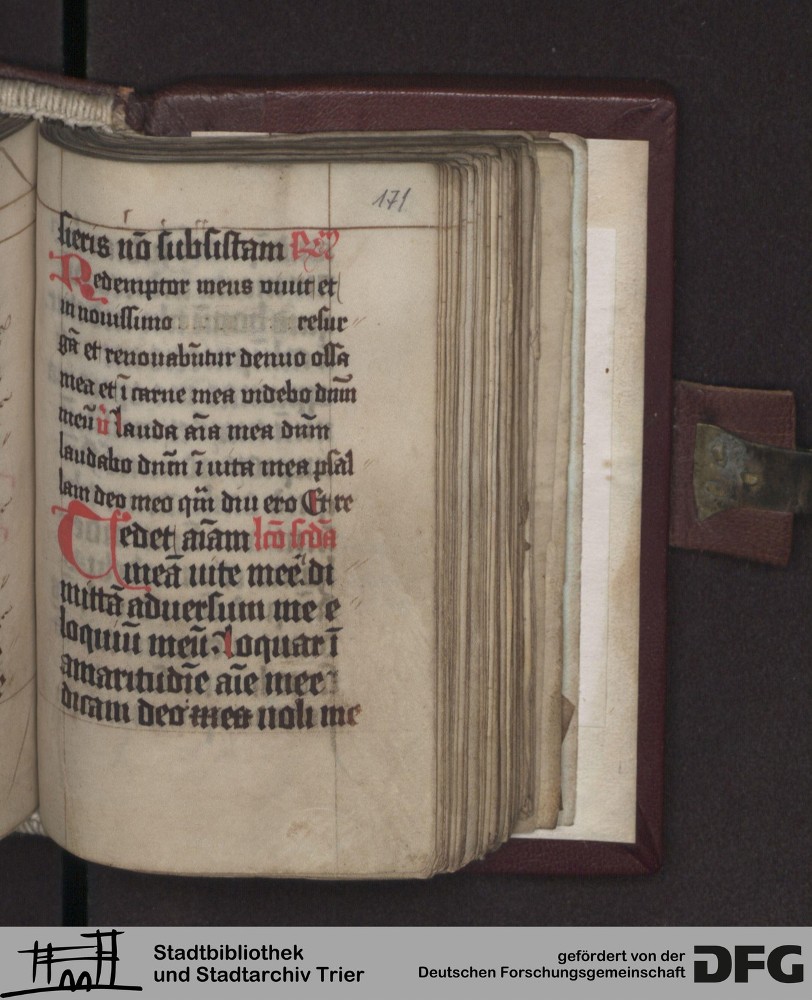 171
sieris nō subsistam Rẽ
Redemptor meus viuit et
in nouissimo resur
gā et renouabūtur denuo ossa
mea et ī carne mea videbo dn̄m
meū v̇ Lauda aīa mea dn̄m
laudabo dn̄m ī uita mea psal
lam deo meo qm̄ diu ero Et re
Tedet aīam lc̄o scd̄a
meā uite mee. di
mittā aduersum me e
loquiū meū. loquar ī
amaritudīe aīe mee
dicam deo mea noli me
Stadtbibliothek
und Stadtarchiv Trier
gefördert von der
Deutschen Forschungsgemeinschaft
DFG